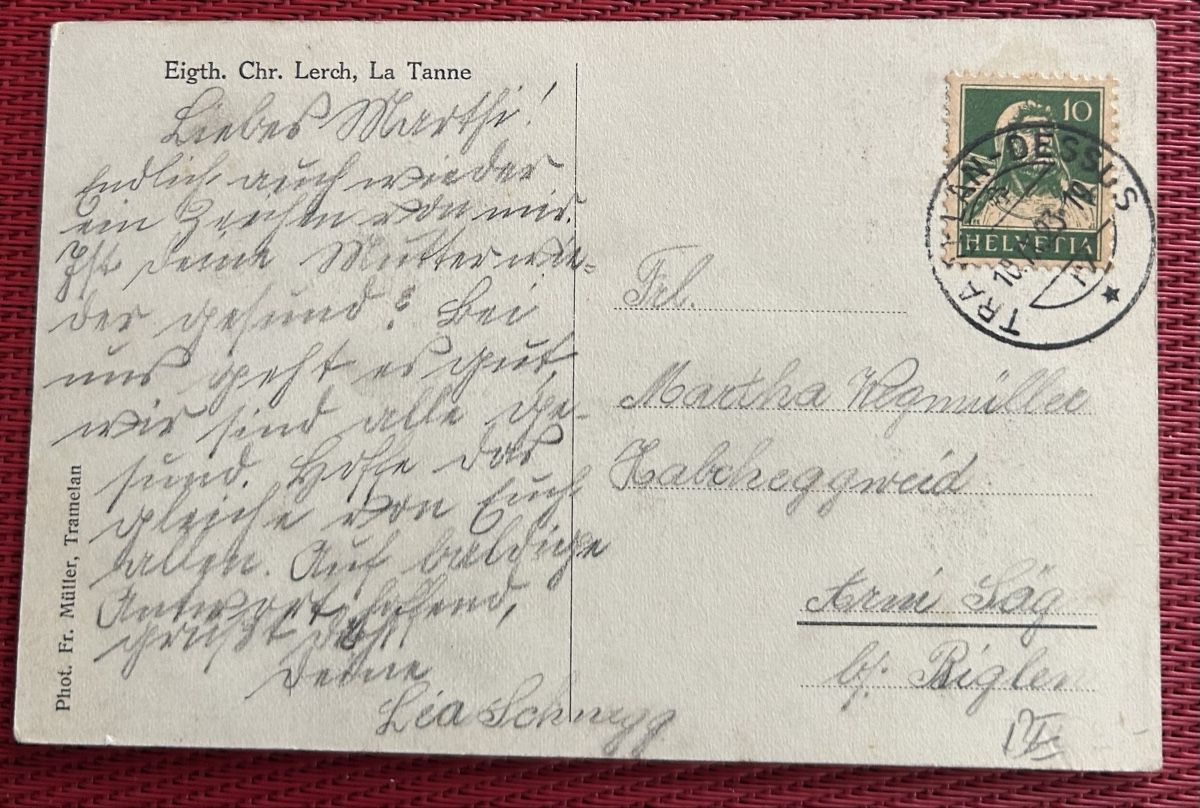 Eigth. Chr. Lerch, La Tanne
Liebes Marthi!
Endlich auch wieder
ein Zeichen von mir.
Ist deine Mutter wie-
der gesund? Bei
uns geht es gut,
wir sind alle ge-
sund. Hoffe das
gleiche von Euch
allen. Auf baldige
Antwort hoffend,
grüsst dich
Deine
Lea Schnegg
Phot. Fr. Müller, Tramelan
10
HELVETIA
TRAMELAN-DESSUS
Frl.
Martha Wegmüller
Habcheggweid
Arni Säg
b/. Biglen